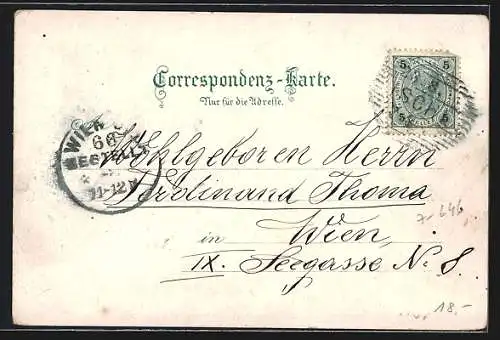 Correspondenz-Karte.
Nur für die Adresse.
5 5
5 5
WIEN
66
BESTELLT
11-12V
Wohlgeboren Herrn
Ferdinand Thoma
in Wien,
IX. Seegasse N° 8.
18.-